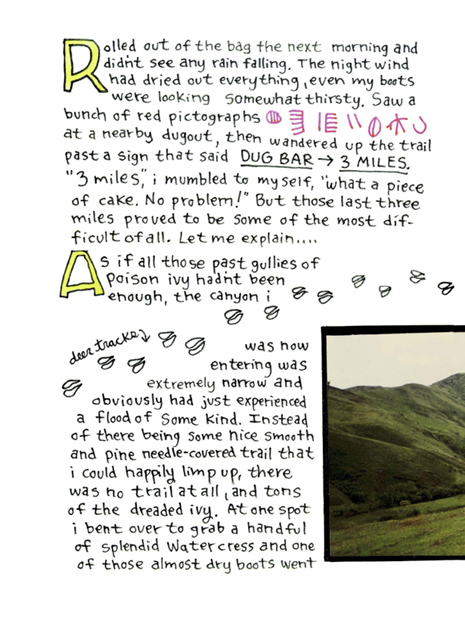 Rolled out of the bag the next morning and
didn't see any rain falling. The night wind
had dried out everything, even my boots
were looking somewhat thirsty. Saw a
bunch of red pictographs
at a nearby dugout, then wandered up the trail
past a sign that said DUG BAR → 3 MILES.
"3 miles", i mumbled to myself, "what a piece
of cake. No problem!" But those last three
miles proved to be some of the most dif-
ficult of all. Let me explain....
As if all those past gullies of
poison ivy hadn't been
enough, the canyon i
deer tracks
was now
entering was
extremely narrow and
obviously had just experienced
a flood of some kind. Instead
of there being some nice smooth
and pine needle-covered trail that
i could happily limp up, there
was no trail at all, and tons
of the dreaded ivy. At one spot
i bent over to grab a handful
of splendid Watercress and one
of those almost dry boots went